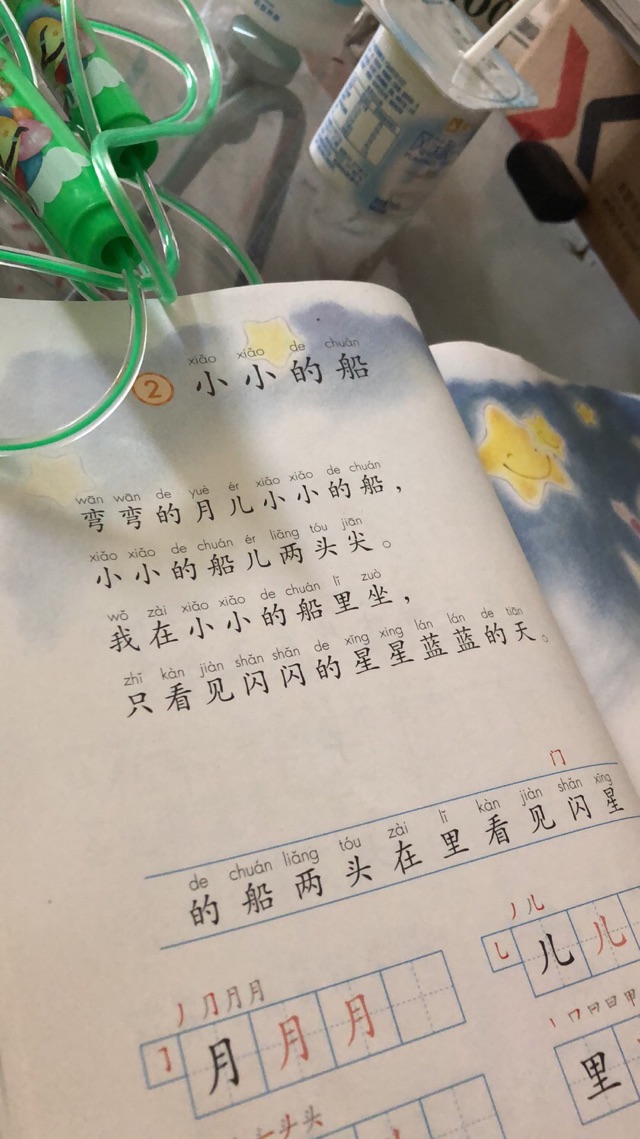 xiǎo xiǎo de chuán
② 小小的船
wān wān de yuè ér xiǎo xiǎo de chuán
弯弯的月儿小小的船，
xiǎo xiǎo de chuán ér liǎng tóu jiān
小小的船儿两头尖。
wǒ zài xiǎo xiǎo de chuán lǐ zuò
我在小小的船里坐，
zhǐ kàn jiàn shǎn shǎn de xīng xing lán lán de tiān
只看见闪闪的星星蓝蓝的天。
门
de chuán liǎng tóu zài lǐ kàn jiàn shǎn xīng
的船两头在里看见闪星
丿 儿
乚 儿 儿
丿 ⺆ 月 月
𠃌 月 月 月
丨 口 日 日 甲
里
头 头